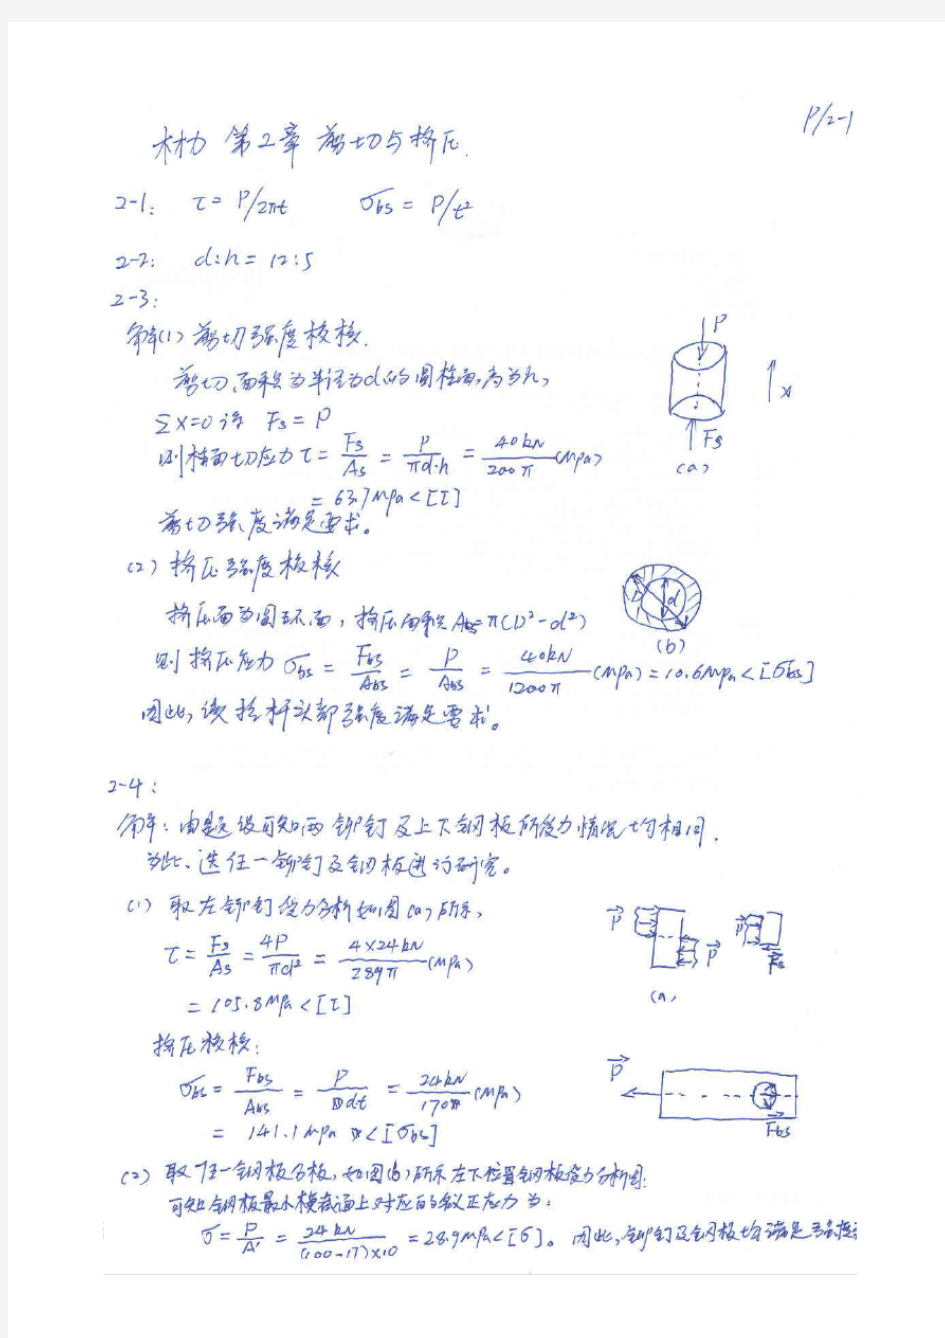 P/2-1
材力 第2章 剪切与挤压.
2-1: τ = P/2πt σbs = P/t²
2-2: d:h = 12:5
2-3:
解(1) 剪切强度校核.
剪切面积为半径为d的圆柱面,高为h,
ΣX=0 得 Fs = P
则柱面切应力 τ = Fs/As = P/πd·h = 40kN/200π (MPa)
= 63.7MPa < [τ]
剪切强度满足要求。
P
X
Fs
(a)
(2) 挤压强度校核
挤压面为圆环面, 挤压面积 Abs = π(D²-d²)
则 挤压应力 σbs = Fbs/Abs = P/Abs = 40kN/1200π (MPa) = 10.6MPa < [σbs]
因此, 该拉杆头部强度满足要求。
D d
(b)
2-4:
解: 由题设可知两铆钉及上下钢板所受力情况均相同.
为此、选任一铆钉及钢板进行研究。
(1) 取左铆钉受力分析如图(a)所示,
τ = Fs/As = 4P/πd² = 4×24kN/289π (MPa)
= 105.8MPa < [τ]
P P P Fs
(a)
挤压校核:
σbs = Fbs/Abs = P/dt = 24kN/170 (MPa)
= 141.1MPa < [σbs]
P
Fbs
(2) 取任一钢板分板, 如图(b)所示左下位置钢板受力分析图:
可知钢板最小横截面上对应的名义正应力为:
σ = P/A' = 24kN/(100-17)×10 = 28.9MPa < [σ]。因此, 铆钉及钢板均满足强度